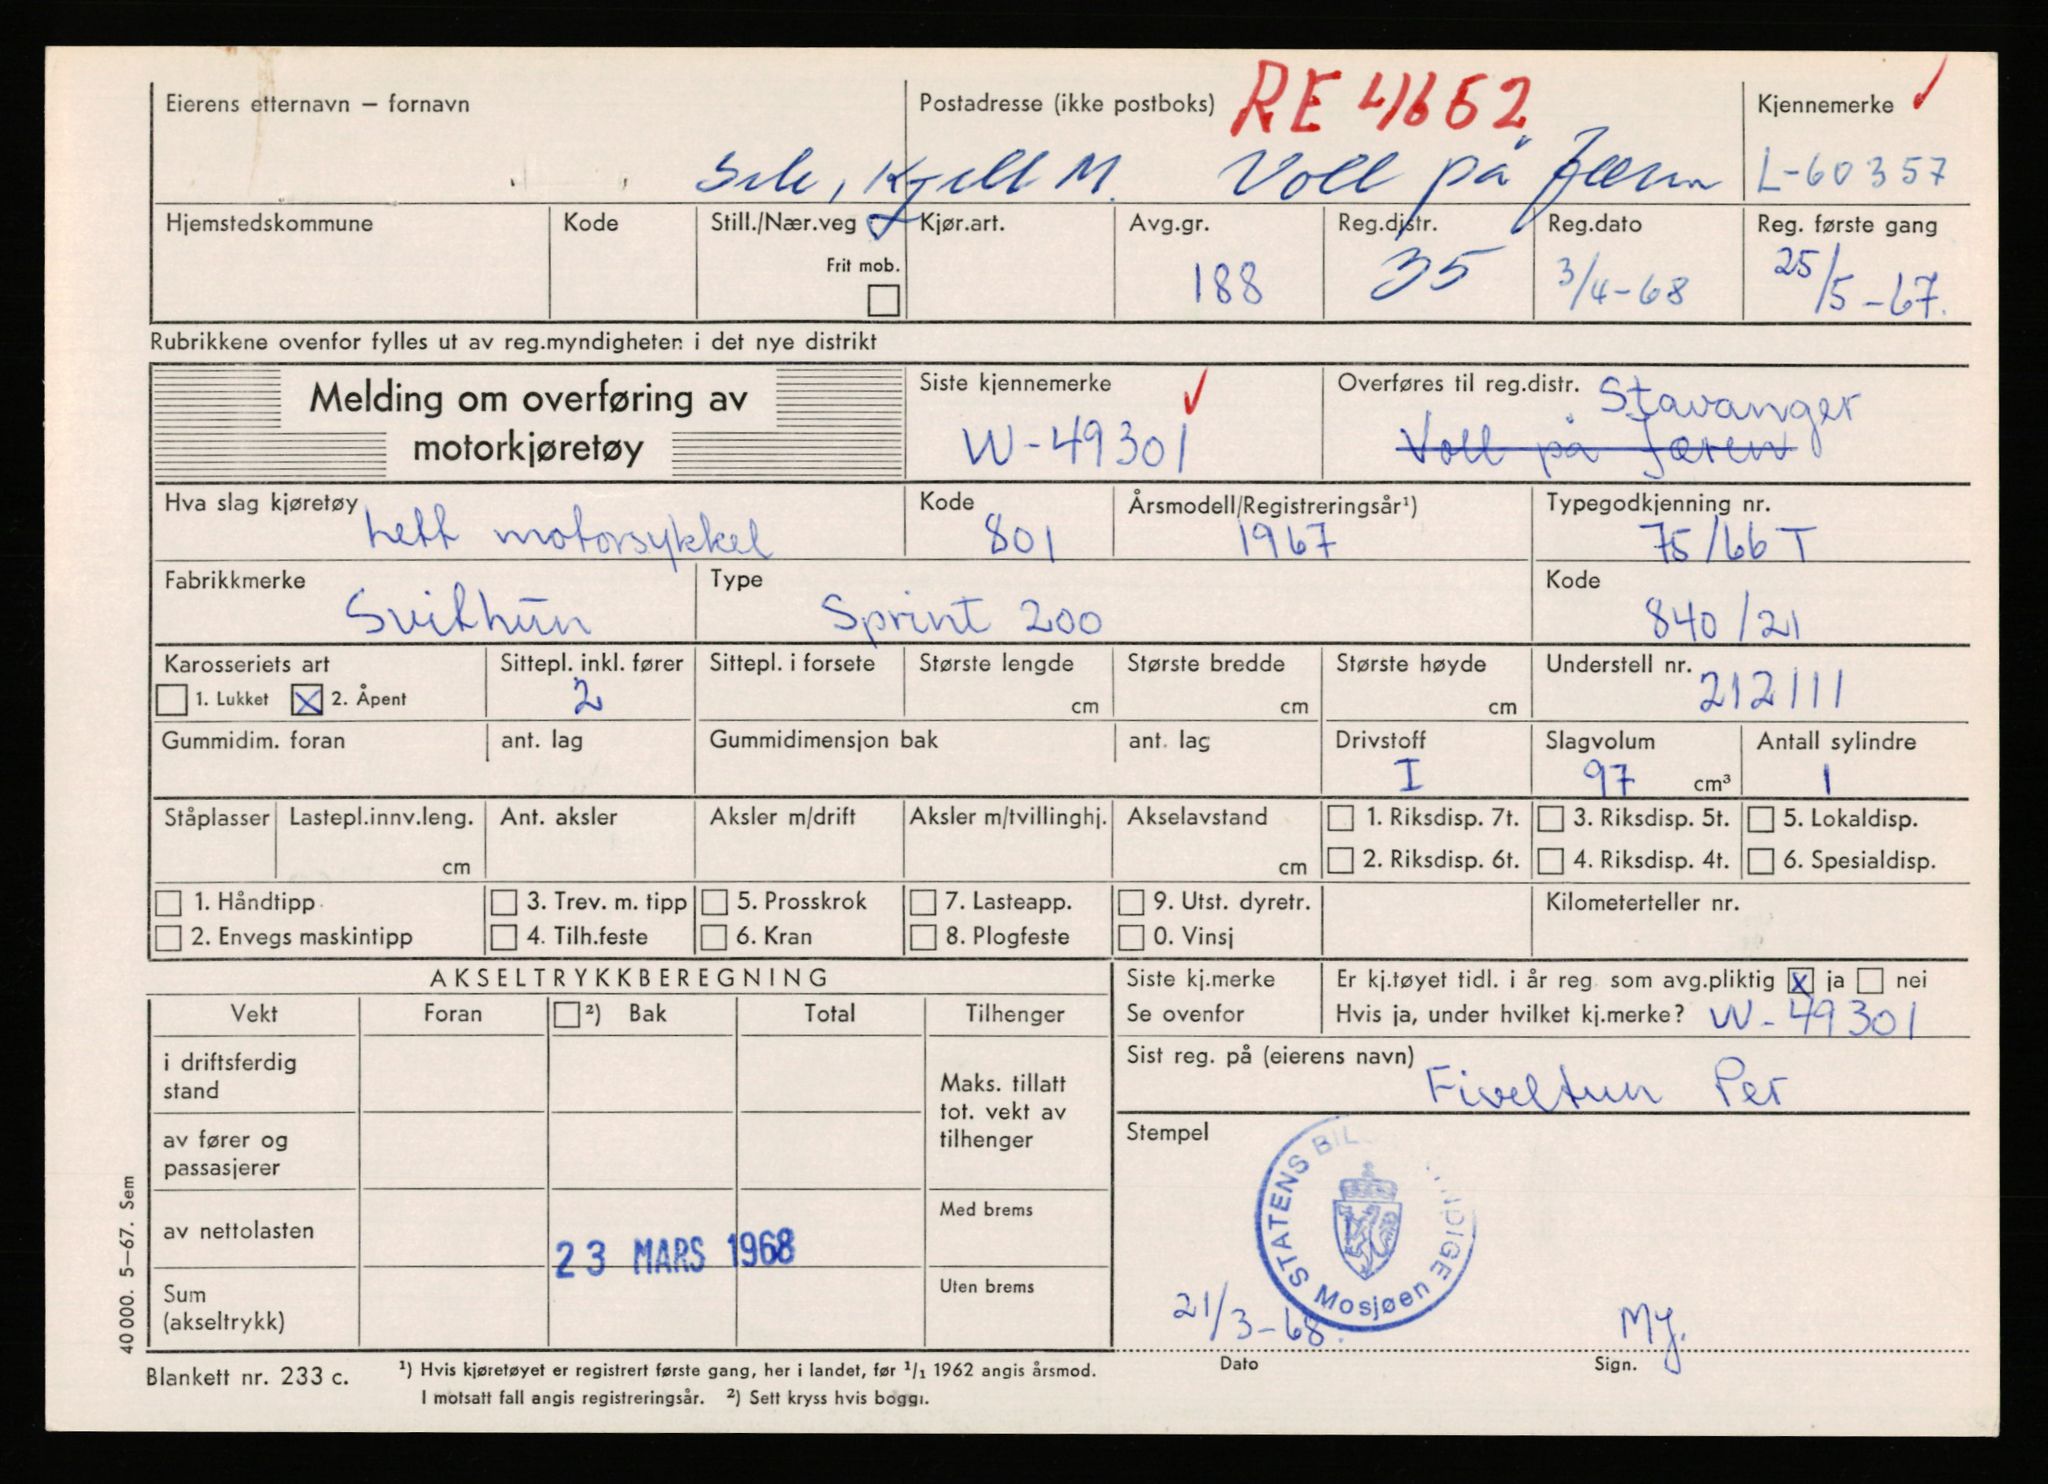 RE 41662
Eierens etternavn – fornavn
Postadresse (ikke postboks)
Kjennemerke
Kjell M. Voll på Jæren L-60357
Hjemstedskommune Kode Still./Nær.veg Kjør.art. Avg.gr. Reg.distr. Reg.dato Reg. første gang
Frit mob.
188 35 3/4-68 25/5-67.
Rubrikkene ovenfor fylles ut av reg.myndigheten i det nye distrikt
Melding om overføring av
motorkjøretøy
Siste kjennemerke
W-49301
Overføres til reg.distr. Stavanger
Voll på Jæren
Hva slag kjøretøy Kode Årsmodell/Registreringsår¹) Typegodkjenning nr.
Lett motorsykkel 801 1967 75/66 T
Fabrikkmerke Type Kode
Svithun Sprint 200 840/21
Karosseriets art Sittepl. inkl. fører Sittepl. i forsete Største lengde Største bredde Største høyde Understell nr.
1. Lukket 2. Åpent 2 cm cm cm 212111
Gummidim. foran ant. lag Gummidimensjon bak ant. lag Drivstoff Slagvolum Antall sylindre
I 97 cm³ 1
Ståplasser Lastepl.innv.leng. Ant. aksler Aksler m/drift Aksler m/tvillinghj. Akselavstand 1. Riksdisp. 7t. 3. Riksdisp. 5t. 5. Lokaldisp.
cm cm 2. Riksdisp. 6t. 4. Riksdisp. 4t. 6. Spesialdisp.
1. Håndtipp 3. Trev. m. tipp 5. Prosskrok 7. Lasteapp. 9. Utst. dyretr. Kilometerteller nr.
2. Envegs maskintipp 4. Tilh.feste 6. Kran 8. Plogfeste 0. Vinsj
AKSELTRYKKBEREGNING
Siste kj.merke Er kj.tøyet tidl. i år reg. som avg.pliktig ja nei
Se ovenfor Hvis ja, under hvilket kj.merke? W-49301
Vekt Foran ²) Bak Total Tilhenger
Sist reg. på (eierens navn)
Fiveltun Per
i driftsferdig
stand
Maks. tillatt
tot. vekt av
tilhenger
av fører og
passasjerer
Stempel
STATENS BIL NDIGE Mosjøen
av nettolasten
Med brems
23 MARS 1968
Sum
(akseltrykk)
Uten brems
21/3-68. My.
Dato Sign.
40 000. 5–67. Sem
Blankett nr. 233 c.
¹) Hvis kjøretøyet er registrert første gang, her i landet, før 1/1 1962 angis årsmod.
I motsatt fall angis registreringsår. ²) Sett kryss hvis boggi.